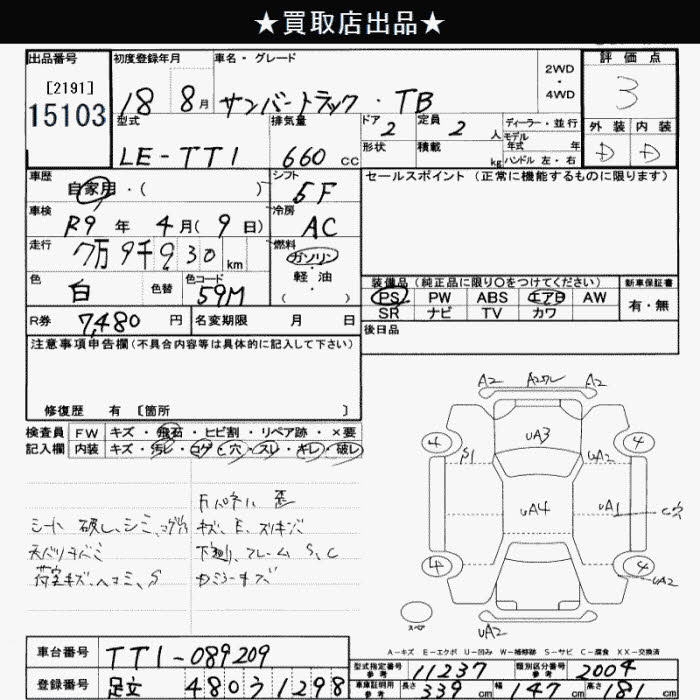 ★買取店出品★
出品番号
[2191]
15103
初度登録年月
18 8月
車名・グレード
サンバートラック・TB
2WD
・
4WD
評価点
3
外装 内装
D D
型式
LE-TT1
排気量
660cc
ドア
2
形状
定員
2人
積載
kg
ディーラー・並行
モデル
年式 年
ハンドル 左・右
車歴
自家用・( )
シフト
5F
車検
R9年4月(9日)
冷房
AC
走行
7万9千930km
燃料
ガソリン
軽油
( )
色
白
色替
色コード
59M
R券
7,480円
名変期限 月 日
セールスポイント(正常に機能するものに限ります)
装備品(純正品に限り○をつけてください)
PS PW ABS エアB AW
SR ナビ TV カワ
新車保証書
有・無
後日品
注意事項申告欄(不具合内容等は具体的に記入して下さい)
修復歴 有 [箇所 ]
検査員
記入欄
FW キズ・飛石・ヒビ割・リペア跡・×要
内装 キズ・汚レ・コゲ・穴・スレ・キレ・破レ
シート 破レ、シミ、コゲ穴
荷室キズ、ヘコミ、S
キズ、E、
下廻り、フレーム S、C
A2 A2ワレ A2
4 UA3 4
S1 UA2
UA4 UA1 C穴
4 4
UA2
スペア
UA2
A-キズ E-エクボ U-凹み W-補修跡 S-サビ C-腐食 XX-交換済
車台番号
TT1-089209
登録番号
足立 480う1298
型式指定番号
参考
11237
類別区分番号
参考
2004
車庫証明用
参考
長さ 339cm 幅 147cm 高さ 181cm